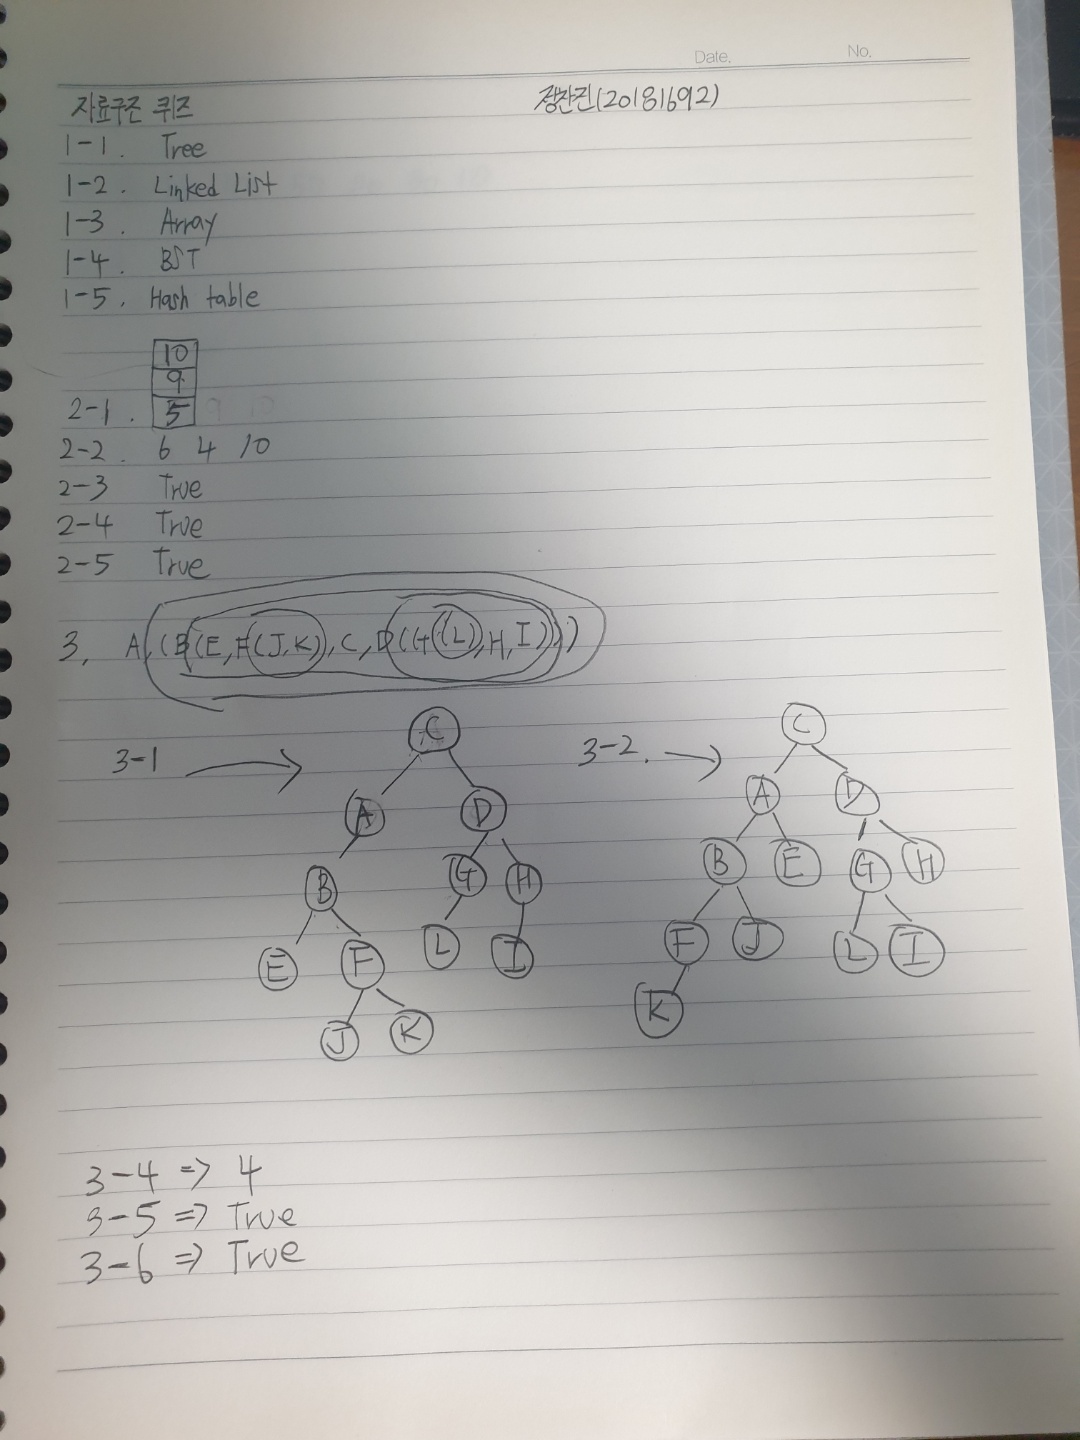 Date. No.
자료구조 퀴즈 정찬진(20181692)
1-1. Tree
1-2. Linked List
1-3. Array
1-4. BST
1-5. Hash table
10
9
2-1. 5
2-2. 6 4 10
2-3 True
2-4 True
2-5 True
3, A,(B(E,F(J,K),C,D(G(L),H,I)))
3-1 3-2.
C C
A D A D
B G H B E G H
E F L I F J L I
J K K
3-4 => 4
3-5 => True
3-6 => True